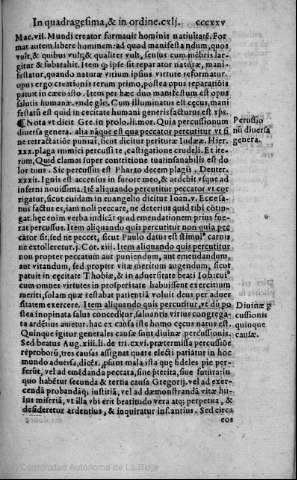 In quadragesima, & in ordine. cxlj. ccccxxv
Mac. vii. Mundi creator formauit hominis natiuitatē. For
mat autem libere hominem: ad quod manifestandum, quos
vult, & quibus vult, & qualiter vult, sensus cum mēbris lar-
gitur & substrahit. Item quod ipse sit reparator naturæ, mani-
festatur, quando naturæ vitium ipsius virtute reformatur.
opus ergo creationis rerum primo, postea opus reparatiōis
patuit in cæco isto. Item per hæc duo manifestum est opus
salutis humanæ. vnde glo. Cum illuminatus est cæcus, mani
festatū est quid in cæcitate humani generis facturus est xp̄s.
¶ Nota vt dicit Gre. in prolo. li. mor. Quia percussionum
diuersa genera. alia nāque est qua peccator percutitur vt si
ne retractatiōe puniat, sicut dicitur peritura Iudææ. Hier.
xxx. plaga inimici percussi te, castigatione crudeli. Et ite-
rum, Quid clamas super contritione tua? insanabilis est do-
lor tuus. Sic percussus est Pharao decem plagis, Deuter.
xxxii. Ignis est accensus in furore meo, & ardebit vsque ad
inferni nouissima. Itē aliquando percutitur peccator vt cor
rigatur, sicut cuidam in euangelio dicitur Ioan. v. Ecce sa-
nus factus es, iam noli peccare, ne deterius quid tibi cōtin-
gat. hęc enim verba indicāt quod emendationem prius fue-
rat percussus. Item aliquando quis percutitur non quia pec
cator sit, sed ne peccet, sicut Paulo datus est stimulus carnis
ne extolleretur. j. Cor. xii. Item aliquando quis percutitur,
non propter peccatum aut puniendum, aut emendandum,
aut vitandum, sed propter vitæ meritum augendum, sicut
patuit in cæcitate Thobiæ, & in aduersitate beati Iob: cui
cum omnes virtutes in prosperitate habuissent exercitium
meriti, solam quæ restabat patientiā voluit deus per aduer
sitatem exercere. Item aliquando quis percutitur, vt dū po
stea inopinata salus conceditur, saluantis virtus congregata
ardētius ametur. hac ex causa iste homo cæcus natus est.
Quinque igitur generales causæ sunt diuinæ percussionis.
Sed beatus Aug. xiii. li. de tri. cxvi. prætermissa percussiōe
reproborū, tres causas assignat quare electi patiātur in hoc
mundo aduersa, dicēs, possunt mala ista quæ fideles pie per-
ferūt, vel ad emēdanda peccata, siue præterita, siue futura: in
quo habetur secunda & tertia causa Gregorij. vel ad exer-
cendā probandāque iustitiā, vel ad demonstrandā vitæ hu-
ius miseriā, vt illa vbi erit beatitudo vera atque perpetua, &
desideretur ardentius, & inquiratur instantius. Sed circa
eos
Percussio
nū diuersa
genera.
Diuinæ p
cussionis
quinque
causæ.
Comunidad Autónoma de La Rioja